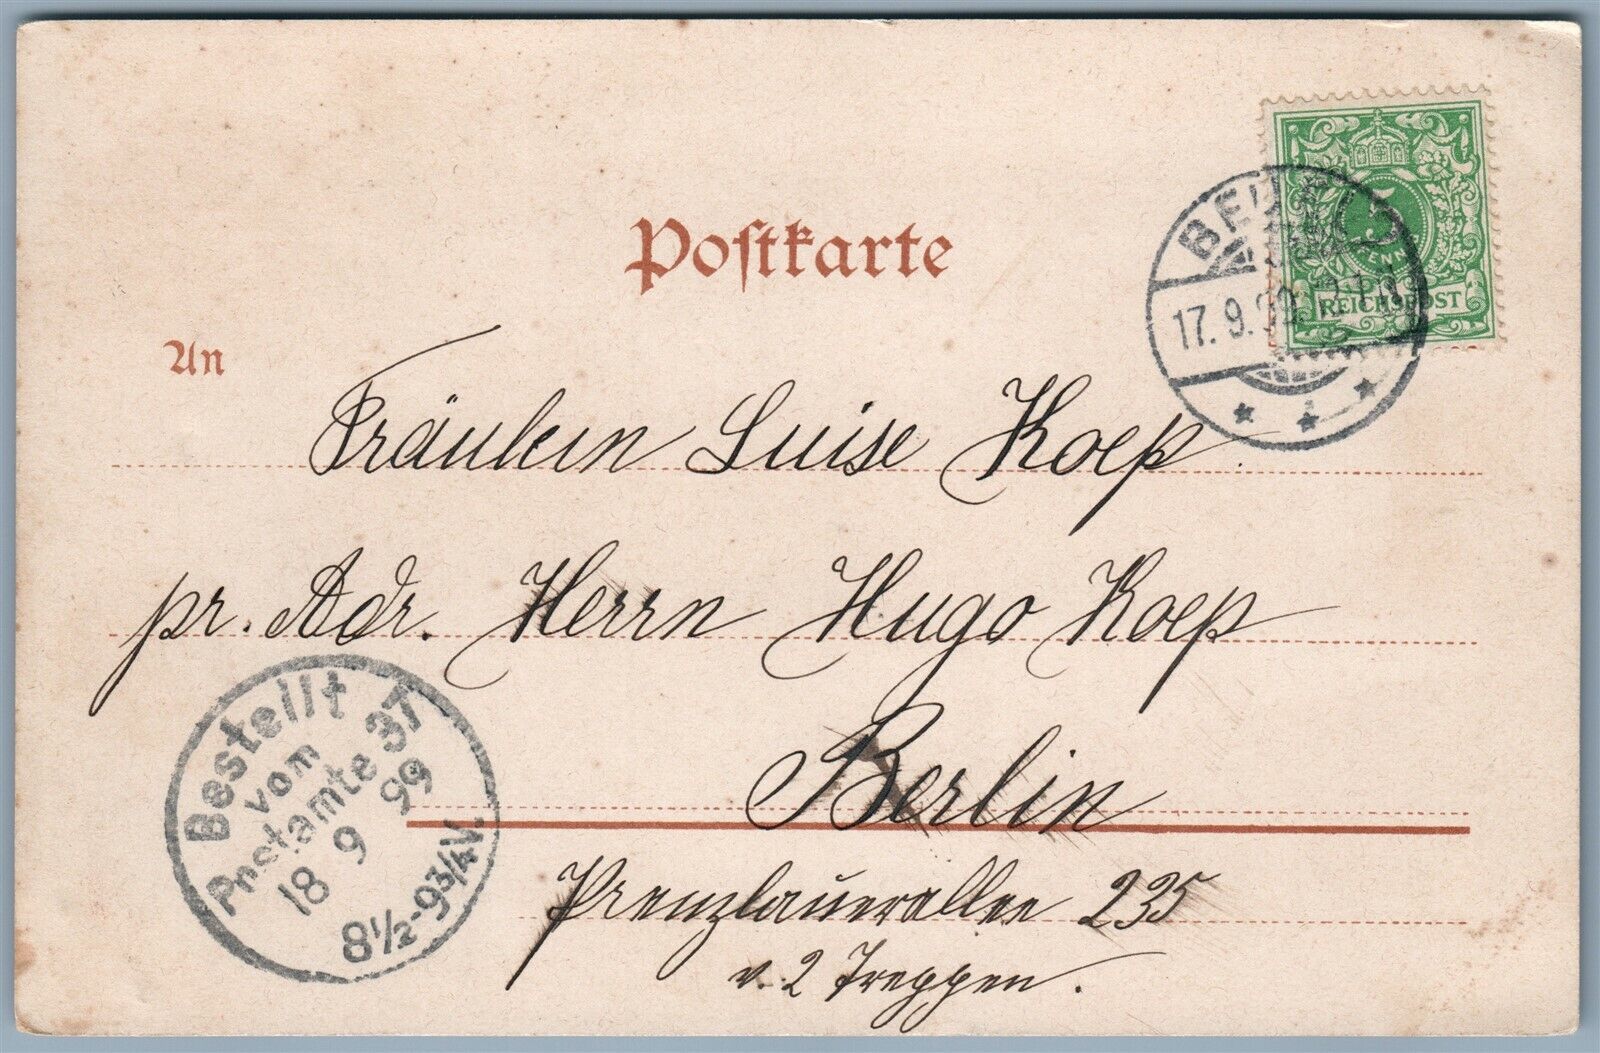 Postkarte
5
PFENNIG
REICHSPOST
17. 9. 99.
An
Fräulein Luise Koep
pr. Adr. Herrn Hugo Koep
Berlin
Prenzlauerallee 235
v. 2 Treppen.
Bestellt
vom
Postamte 37
18 9 99
8½-9¾V.